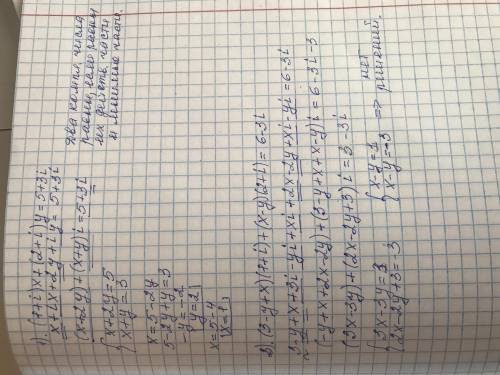 1). (1+i)x+(2+i)y=5+3i
x+ix+2y+iy=5+3i
(x+2y)+(x+y)i=5+3i
{x+2y=5
{x+y=3
x=5-2y
5-2y+y=3
-y=-2
y=2
x=5-4
x=1
Два компл. числа
равны, если равны
их действ. части
и мнимые части.
2). (3-y+x)(1+i)+(x-y)(2+i)=6-3i
3-y+x+3i-yi+xi+2x-2y+xi-yi=6-3i
(-y+x+2x-2y)+(3-y+x+x-y)i=6-3i-3
(3x-3y)+(2x-2y+3)i=3-3i
{3x-3y=3
{2x-2y+3=-3
{x-y=1
{x-y=-3
=> нет
решений.